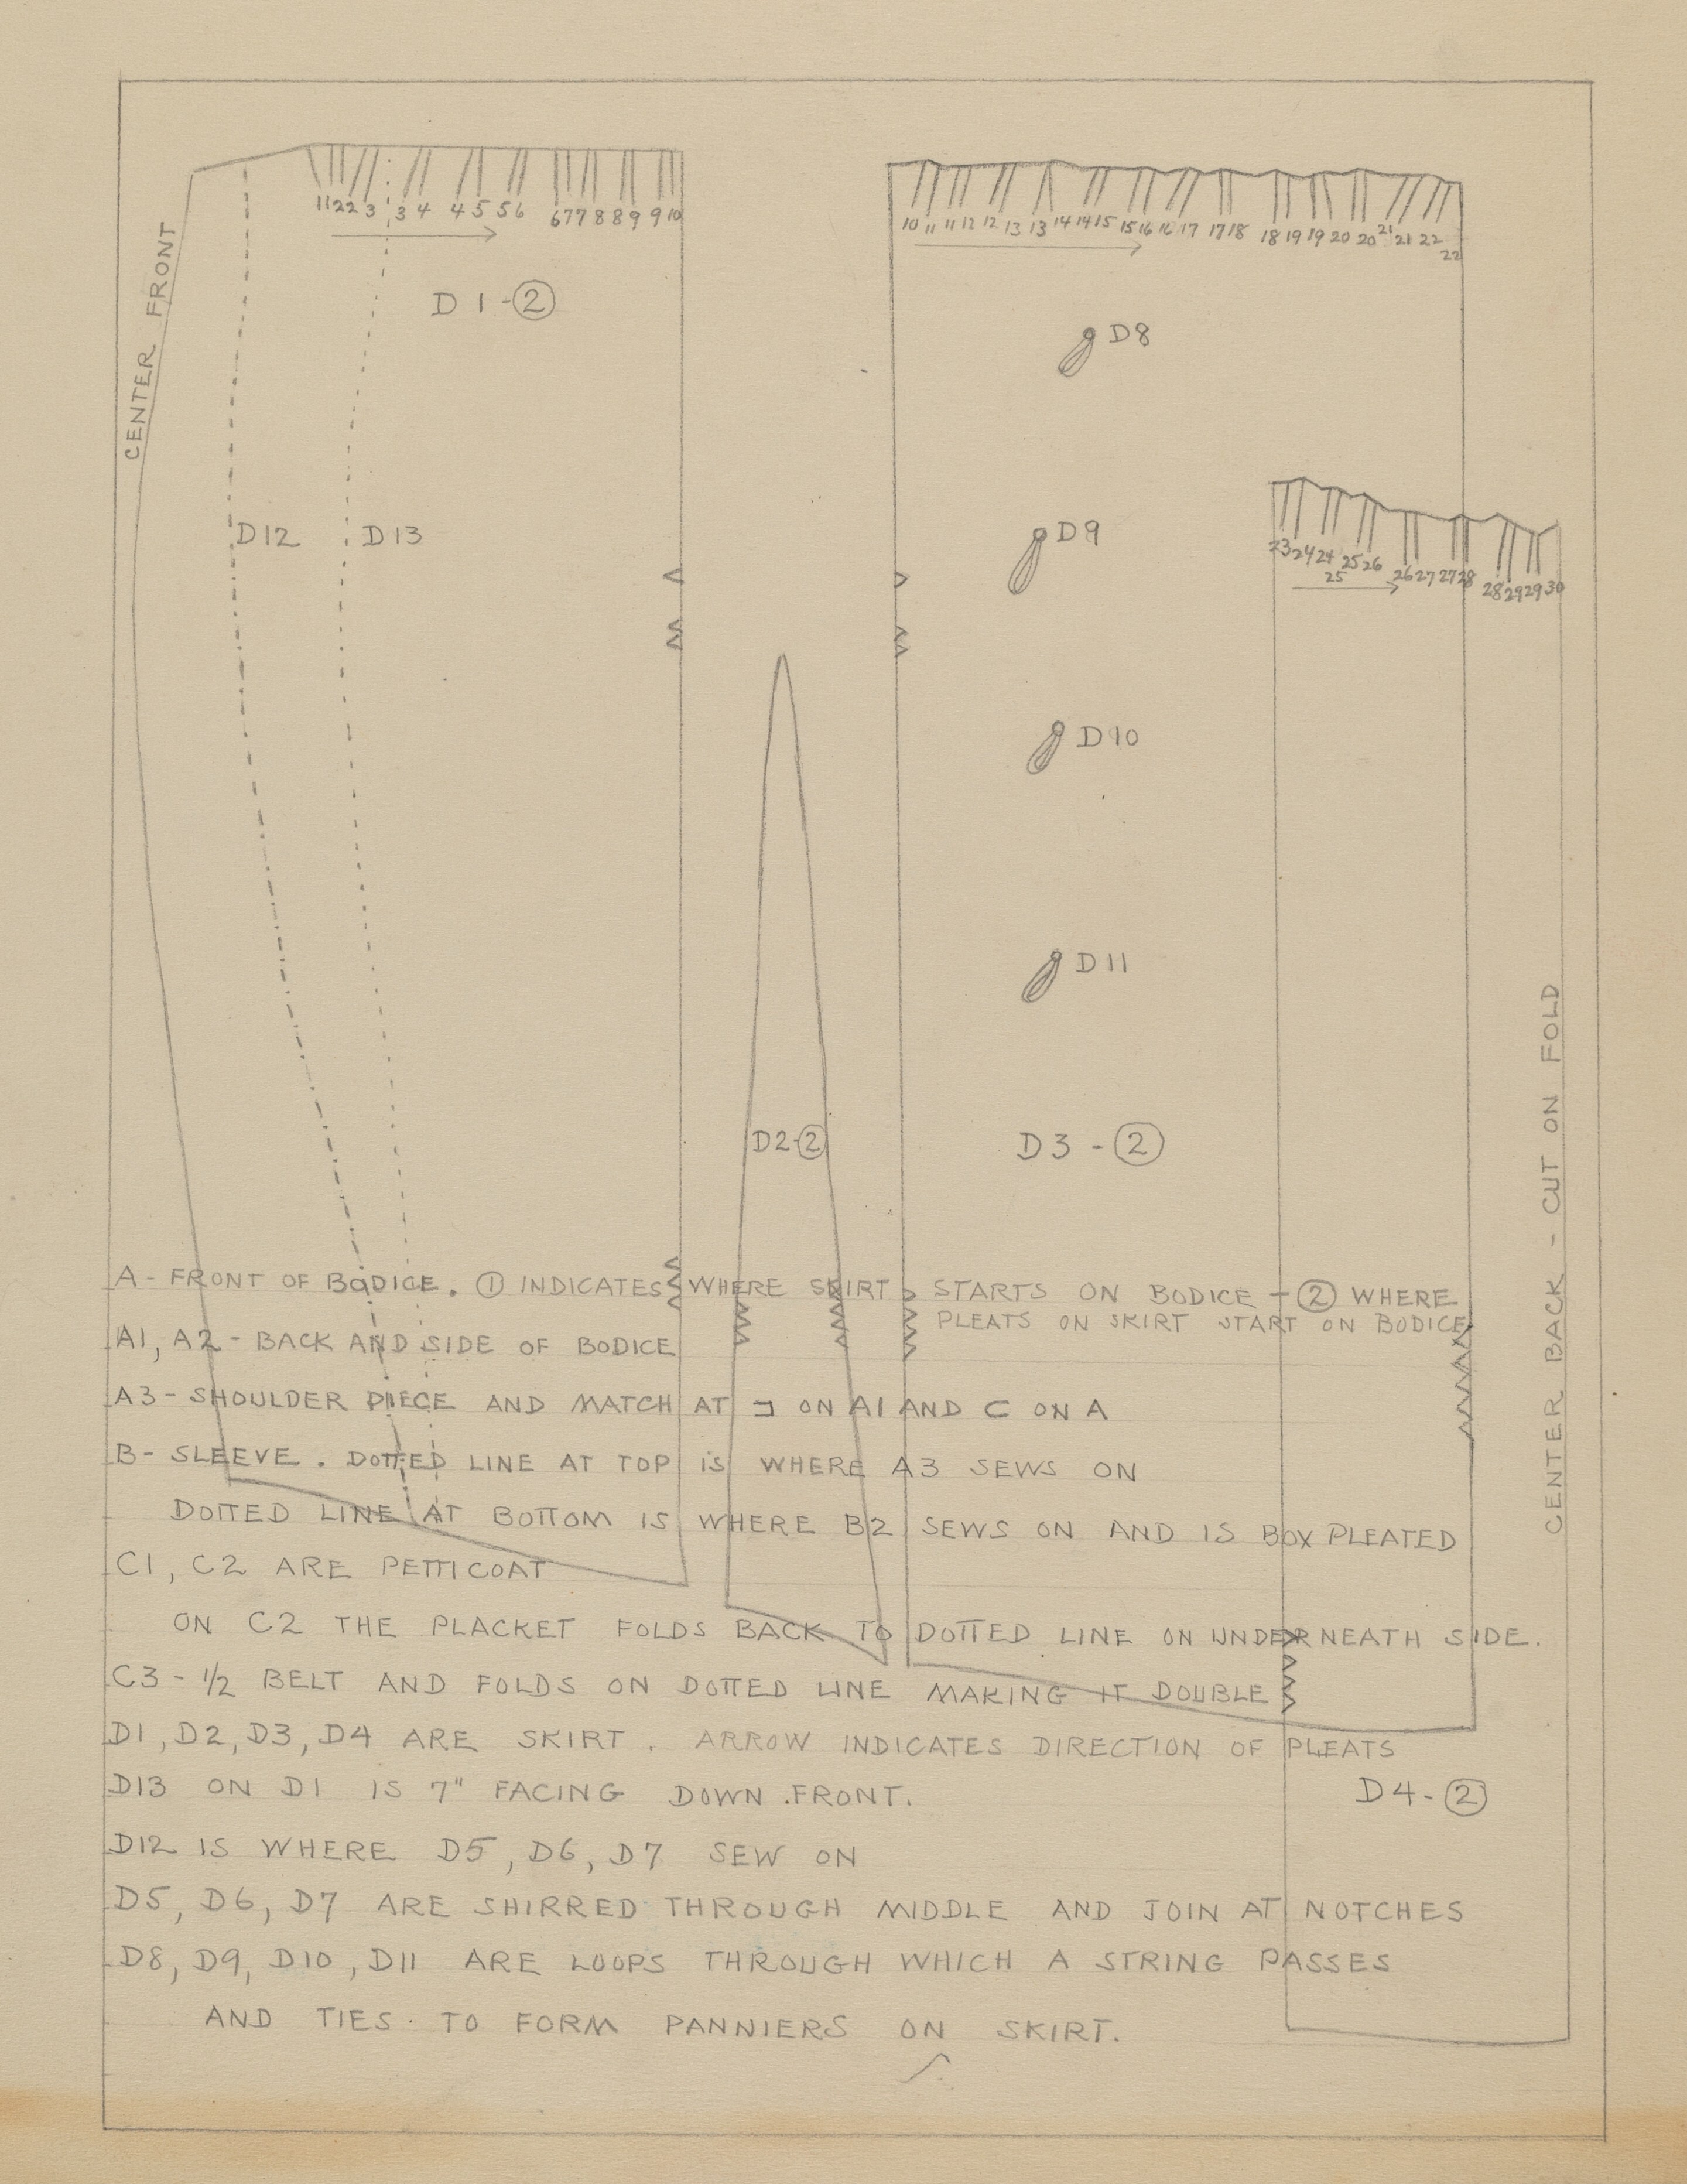 1 1 2 2 3 3 4 4 5 5 6 6 7 7 8 8 9 9 10
10 11 11 12 12 13 13 14 14 15 15 16 16 17 17 18 18 19 19 20 20 21 21 22 22
CENTER FRONT
D 1 - ②
D8
D12
D13
D9
23 24 24 25 25 26 26 27 27 28 28 29 29 30
D10
D11
D2-②
D3 - ②
CENTER BACK - CUT ON FOLD
A - FRONT OF BODICE. ① INDICATES WHERE SKIRT STARTS ON BODICE - ② WHERE
PLEATS ON SKIRT START ON BODICE
A1, A2 - BACK AND SIDE OF BODICE
A3 - SHOULDER PIECE AND MATCH AT ⊐ ON A1 AND ⊏ ON A
B - SLEEVE. DOTTED LINE AT TOP IS WHERE A3 SEWS ON
DOTTED LINE AT BOTTOM IS WHERE B2 SEWS ON AND IS BOX PLEATED
C1, C2 ARE PETTICOAT
ON C2 THE PLACKET FOLDS BACK TO DOTTED LINE ON UNDERNEATH SIDE.
C3 - 1/2 BELT AND FOLDS ON DOTTED LINE MAKING IT DOUBLE
D1, D2, D3, D4 ARE SKIRT. ARROW INDICATES DIRECTION OF PLEATS
D13 ON D1 IS 7" FACING DOWN FRONT.
D4-②
D12 IS WHERE D5, D6, D7 SEW ON
D5, D6, D7 ARE SHIRRED THROUGH MIDDLE AND JOIN AT NOTCHES
D8, D9, D10, D11 ARE LOOPS THROUGH WHICH A STRING PASSES
AND TIES TO FORM PANNIERS ON SKIRT.